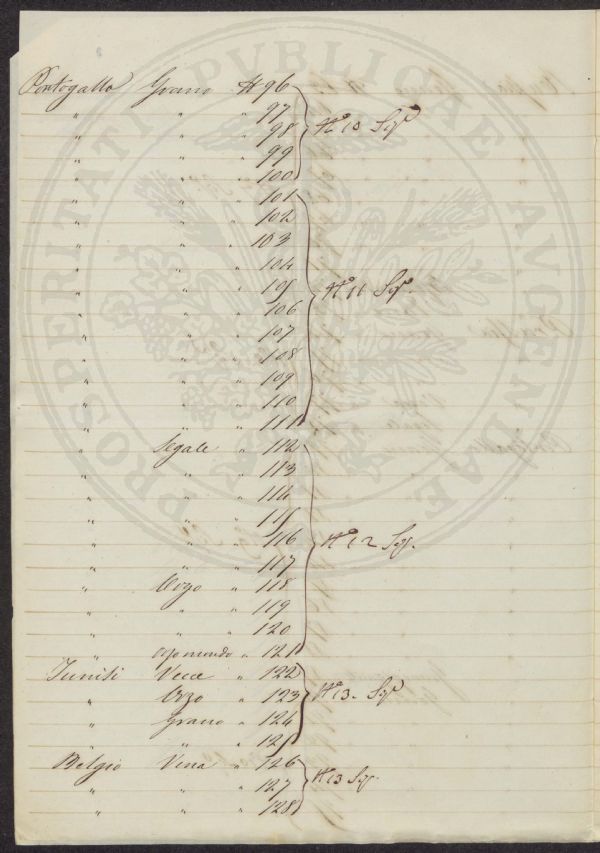 Portogallo Grano № 96
" " " 97
" " " 98 № 10 Sigª
" " " 99
" " " 100
" " " 101
" " " 102
" " " 103
" " " 104
" " " 105 № 11 Sigª.
" " " 106
" " " 107
" " " 108
" " " 109
" " " 110
" " " 111
" Segale " 112
" " " 113
" " " 114
" " " 115
" " " 116 № 12 Sig.
" " " 117
" Orzo " 118
" " " 119
" " " 120
" Orzo mondo " 121
Tunisi Vece " 122
" Orzo " 123 № 13. Sigª
" Grano " 124
" " " 125
Belgio Vena " 126
" " " 127 № 13 Sig.
" " " 128
PROSPERITATI PVBLICAE AVGENDAE